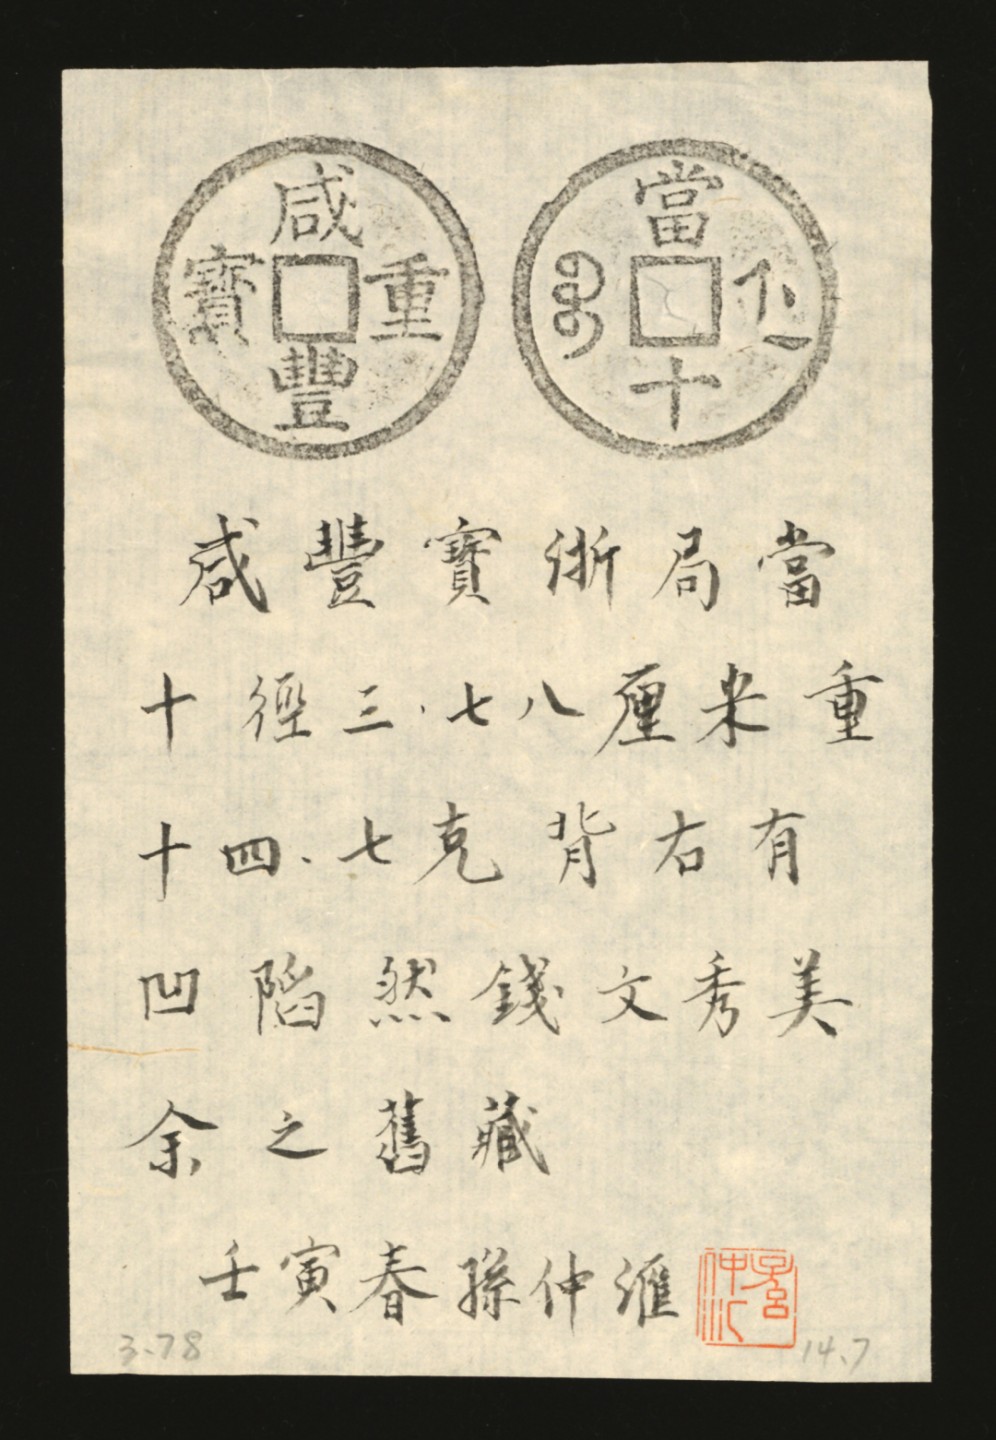 咸豐重寶
當十
咸豐寶浙局當
十徑三.七八厘米重
十四.七克背右有
凹陷然錢文秀美
余之舊藏
壬寅春孫仲滙
3.78
14.7